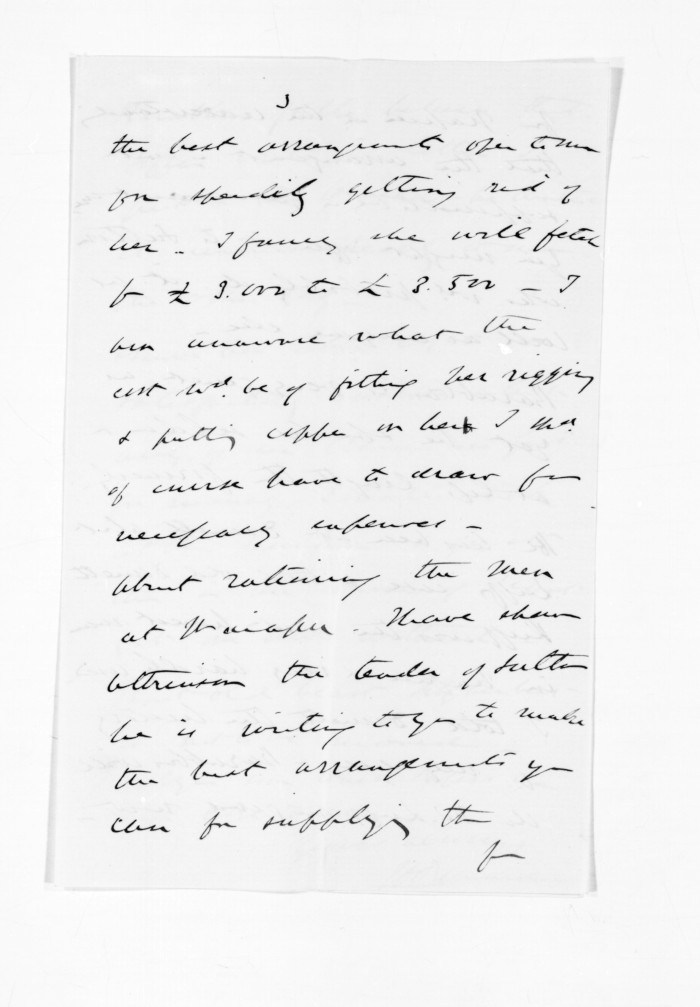 3
the best arrangements open to me
for speedily getting rid of
her - I fancy she will fetch
fr £3.000 to £3.500 - I
am unaware what the
cost wd. be of fitting her rigging
& putting copper on her I
of course have to draw for
necessary expenses -
about rationing the men
at . I have shewn
the tender of Sutton
he is writing to you to make
the best arrangements you
can for supplying th
for